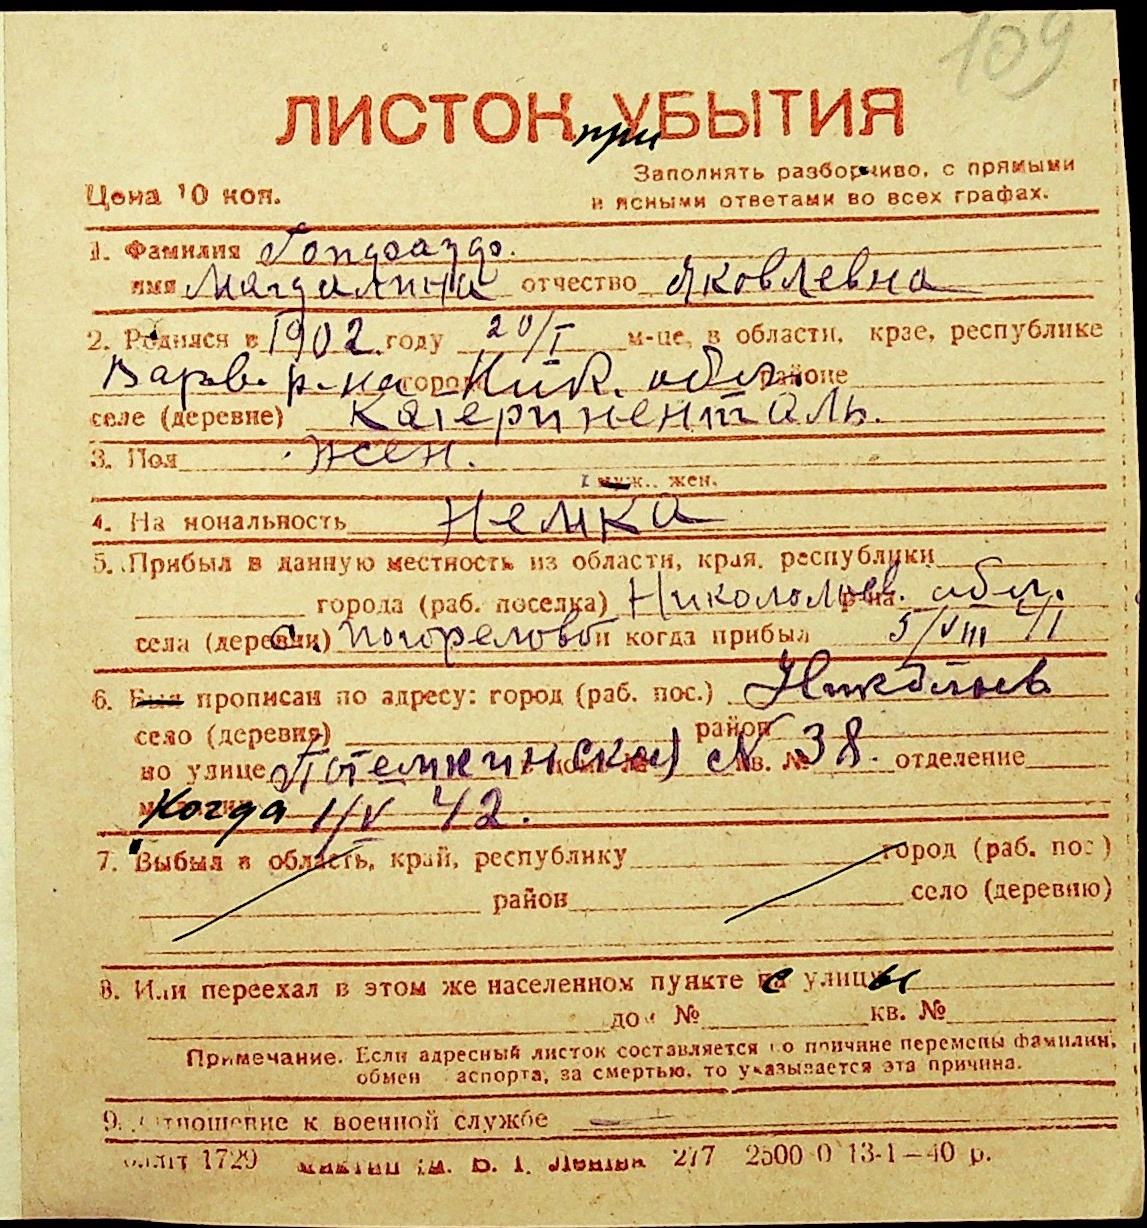 109
ЛИСТОК при УБЫТИЯ
Заполнять разборчиво, с прямыми
Цена 10 коп.
и ясными ответами во всех графах.
1. Фамилия
имя Магдалина отчество Яковлевна
2. Родился в 1902 году 20/I м-це, в области, крае, республике
Варв. р-на городе Ник. обл. районе
селе (деревне) Катериненталь.
3. Пол жен.
муж., жен.
4. Национальность Немка
5. Прибыл в данную местность из области, края, республики
города (раб. поселка) р-на обл.
села (деревни) с. Погорелово и когда прибыл 5/VIII 41
6. Был прописан по адресу: город (раб. пос.) Николаев
село (деревня) район
по улице Потемкинская кв. № 38. отделение
Когда 1/V 42.
7. Выбыл в область, край, республику город (раб. пос)
район село (деревню)
8. Или переехал в этом же населенном пункте с улицы
дом № кв. №
Примечание. Если адресный листок составляется по причине перемены фамилии,
обмен паспорта, за смертью, то указывается эта причина.
9. Отношение к военной службе
1729 277 2500 0 13-1—40 р.